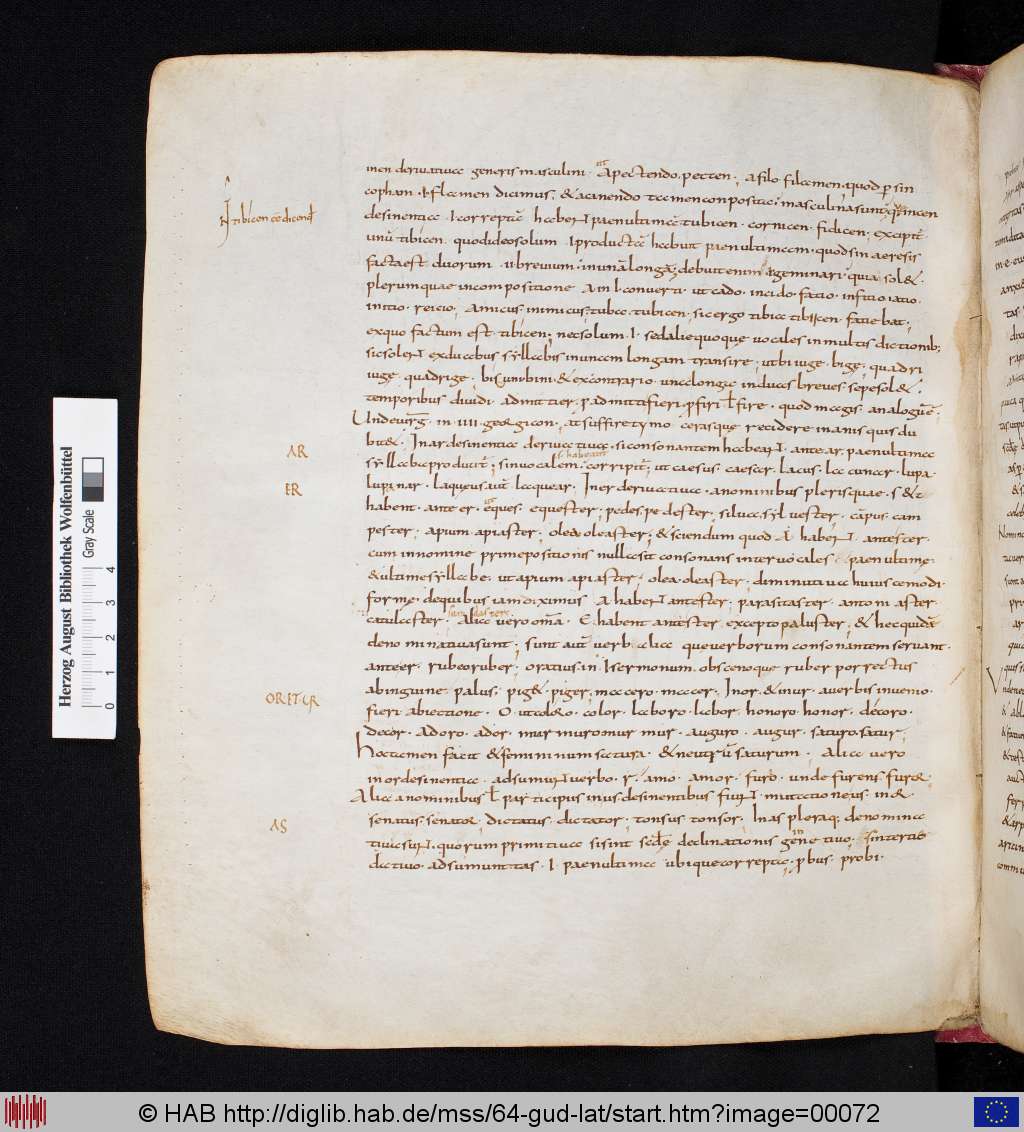 men derivativae generis masculini ut A pectendo pecten ; a filo filamen quod p sin
copham . I . flamen dicimus ; & acanendo tamen conposita masculina sunt q in cen
desinentia . I correptā habeNT paenultimā tubicen . cornicen . fidicen ; excipit̄
N tibicen
unū tibicen quod ideo solum I productā habuit paenultimam . quod sinaeresis
facta est duorum . ii brevium in unā longā ; debuit enim i geminari quia sol&
plerumquae in compositione A in I converti ut cado . incido . facio . inficio iacio
initio . reicio ; Amicus . inimicus . tuba . tubicen ; sic ergo tibia tibiicen faciebat ;
exquo factum est tibicen ; nec solum . I . sed aliae quoque vocales in multis dictionib;
sic soleNT ex duabus syllabis in unam longam transire ; ut biiuge . bige ; quadri
iuge . quadrige ; bis uni bini . & ex contrario . una longa in duas breves sepe sol&
temporibus dividi . admittier p admitti fieri p firi ł fire . quod magis analogū ē
Unde virg̅ . in IIII georgicon . at suffire tymo cerasque recidere inanis quis du
AR
bit& . In ar desinentia derivativa . si consonantem habeaNT . ante ar paenultimam
s. habeant
syllaba producit̄ ; sin vocalem . corripit̄ ; ut caesus caesar . lacus . lacunar . lupa
ER
lupanar . laqueus aut̄ laquear ; In er derivativa . a nominibus plerisquae . s & t
habent . ante er . ut eques equester ; pedes pedester ; silva sylvester . cāpus cam
pester ; apium apiaster ; olea oleaster ; & sciendum quod A habeNT . ante ster
cum in nomine prime positionis nulla sit consonans inter vocales paenultime
& ultime syllabe . ut apium apiaster ; olea oleaster ; diminutiva huiuscemodi
forme . de quibus iam diximus A habeNT ante ster ; parasitaster antoniaster
catulaster . Alia vero om̄a . E . habent ante ster excepto paluster ; & hec quidē
denominativa sunt ; sunt aut̄ verbalia que verborum consonantem servant
ante er . rubeo ruber ; oratius in I sermonum . obscenoque ruber porrectus
ab inguine palus ; pig& piger ; macero macer ; In or & in ur a verbis invenio
OR ET UR
fieri abiectione . O . ut colo . color . laboro . labor . honoro . honor . decoro .
decor . adoro . ador . murmuro murmur . auguro . augur . saturo satur ;
hoc tamen facit & femininum satura . & neutrū saturum . Alia vero
in or desinentia . adsumuNT verbo . r . amo . amor . furo . unde furens . furor
Alia a nominibus ł participiis in us desinentibus fiuNT . mutatione us . in or
AS
senatus . senator . dictatus dictator . tonsus tonsor . In as pleraq; denomina
tiva suNT . quorum primitiva si sint scde declinationis genetivo in sin tertie
dativo . adsumunt tas . I paenultima ubique correpta . p bus probi
Herzog August Bibliothek Wolfenbüttel
Gray Scale
0 1 2 3 4
© HAB http://diglib.hab.de/mss/64-gud-lat/start.htm?image=00072